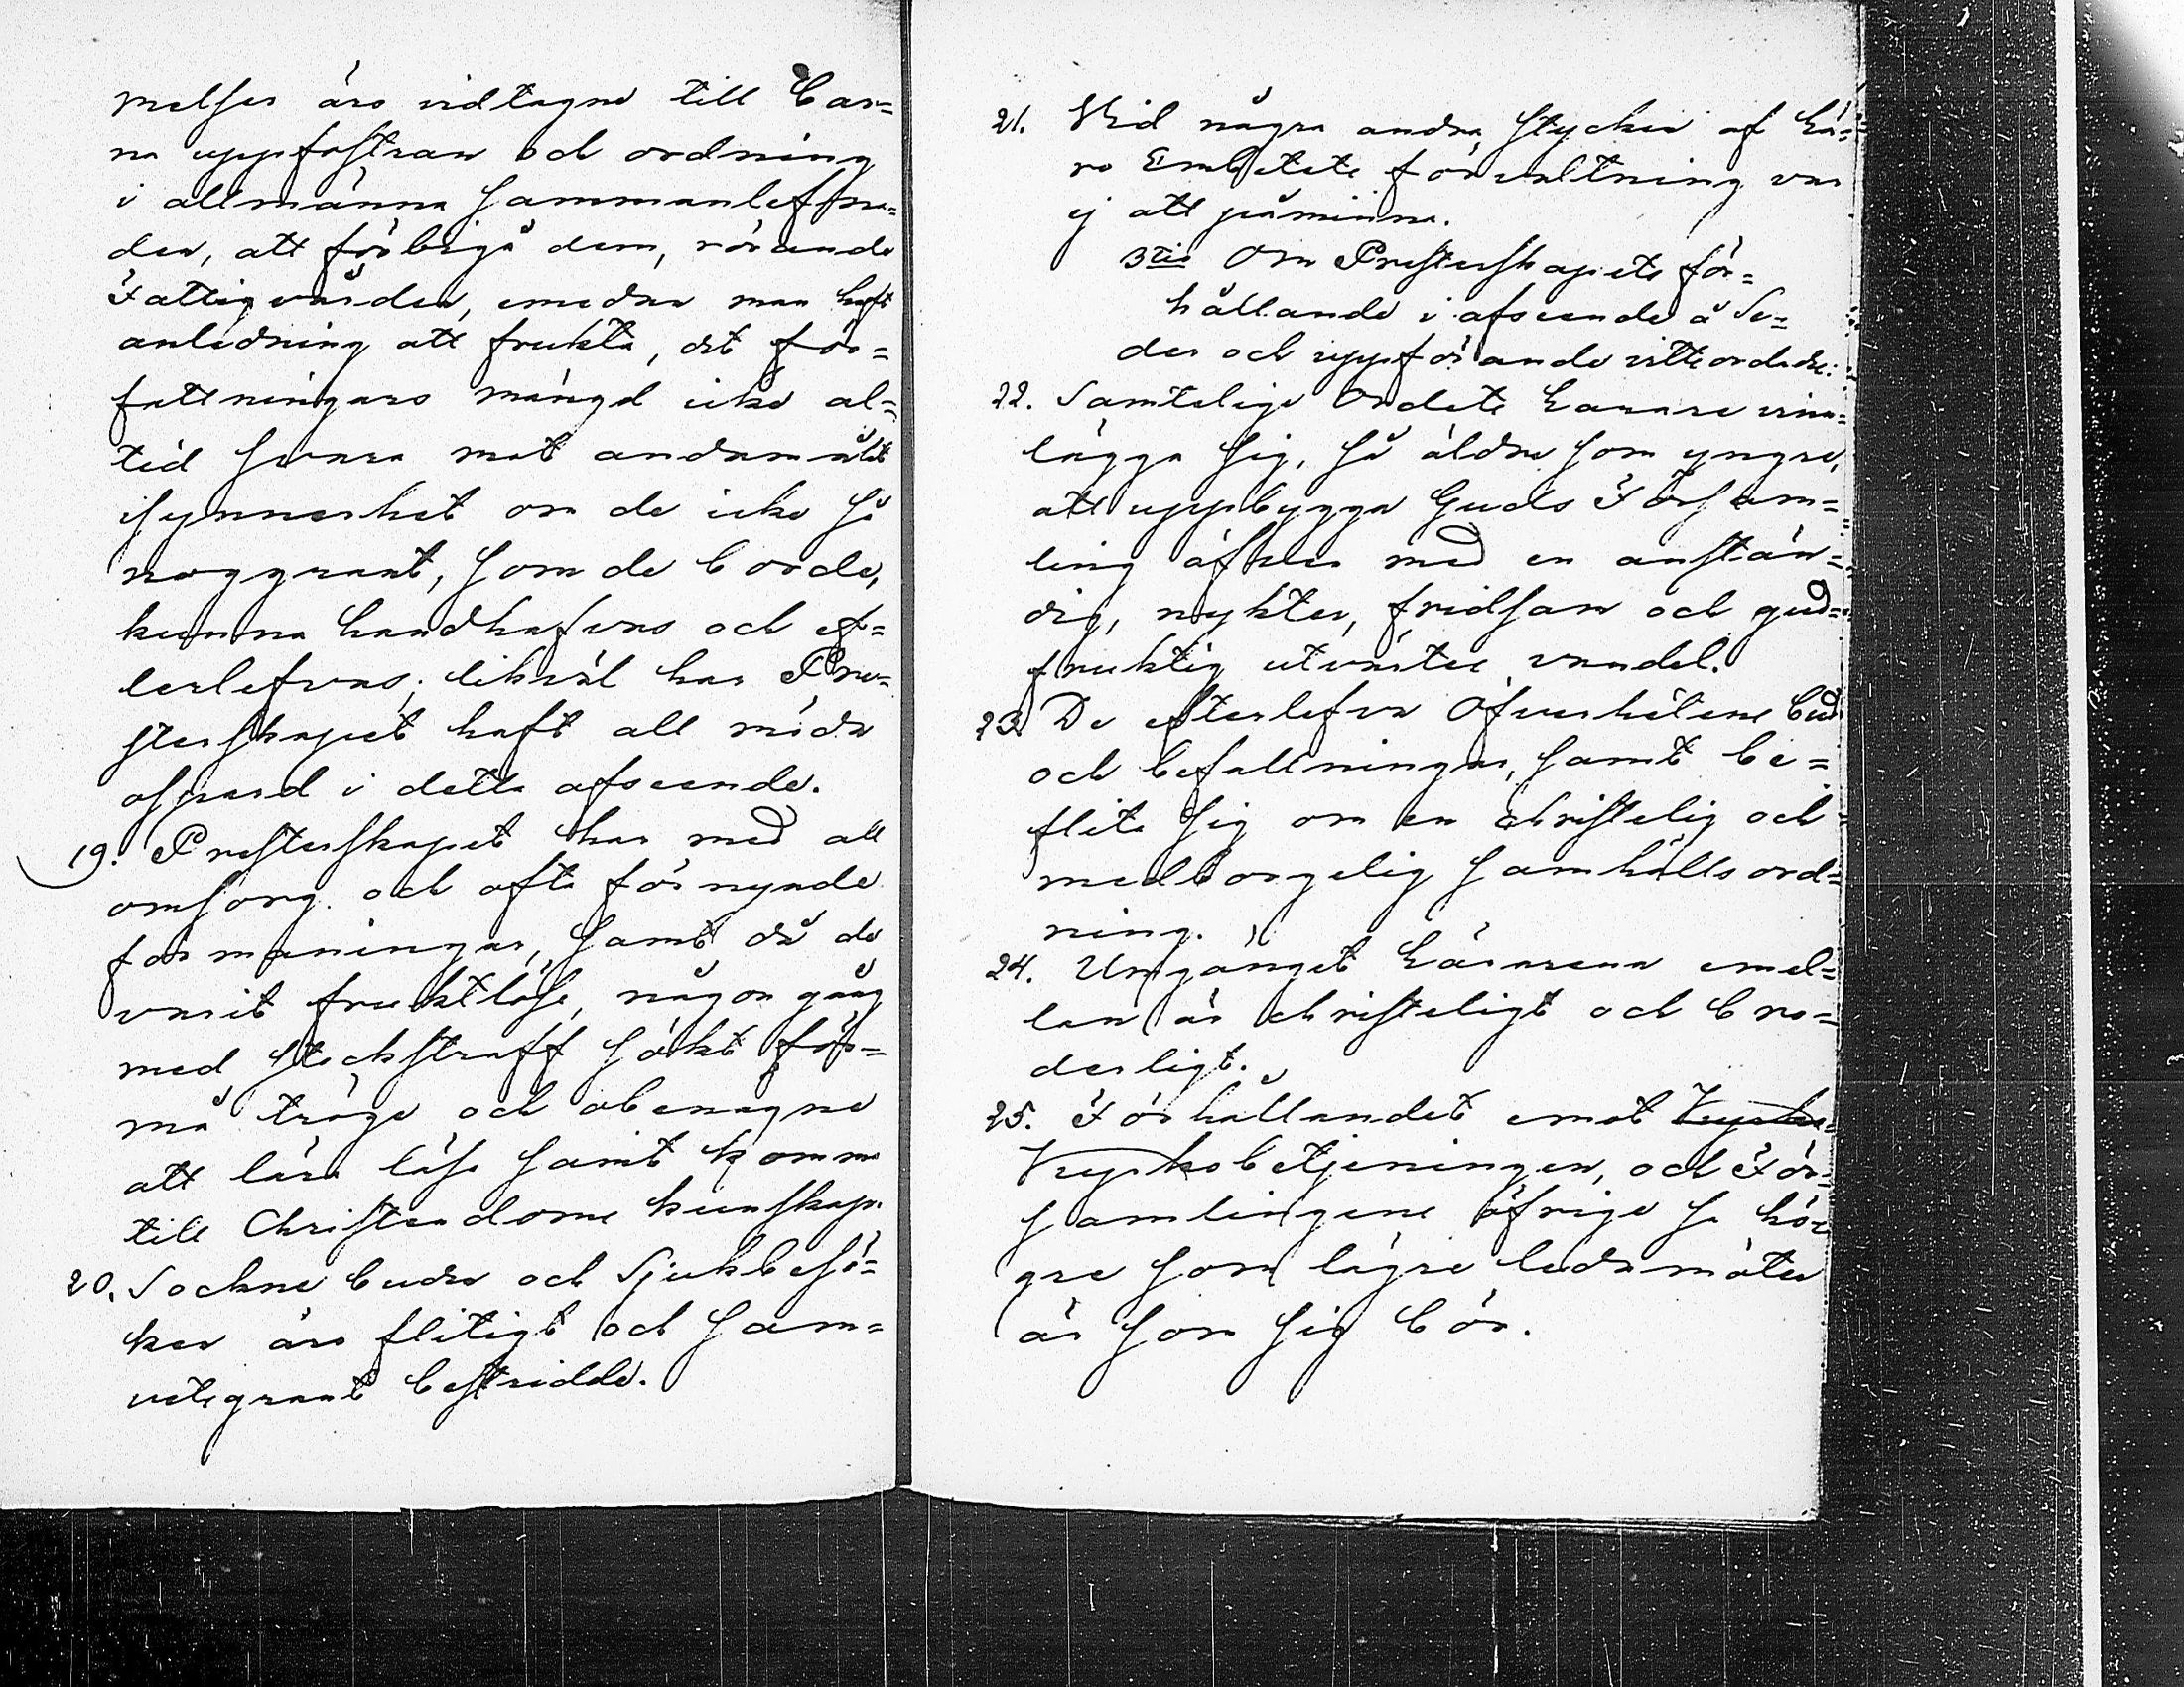 melser äro vidtagne till Bar=
na uppfostran och ordning
i allmänna sammanlefna=
den, att förbigå dem, rörande
Fattigvården, emedan man haft
anledning att frukta, det för=
fattningars mängd icke al=
tid svara mot andamålet
isynnerhet om de icke så
noggrant, som de borde,
kunna handhafvas och ef=
terlefvas; likväl har Pre=
sterskapet haft all möda
ospard i detta afseende.
19. Presterskapet har med all
omsorg och ofta förnyade
formaningar, samt då de
varit fruktlöse, någon gång
med stockstraff sökt för=
må tröge och obenägne
att lära läsa samt komma
till Christendoms kunskap.
20. Sockne buden och Sjukbesö=
ken äro flitigt och sam=
vetsgrant bestridde.
21. Vid några andra stycken af Lä=
ro Embetets förvaltning var
ej att påminna.
3tio Om Presterskapets för=
hållande i afseende å Se=
der och uppförande vitsordades:
22. Samtelige Ordets Larare vinn=
lägga sig, så äldre som yngre,
att uppbygga Guds Försam=
ling äfven med en anstän=
dig, nykter, fridsam och gud=
fruktig utvärtes vandel.
23. De efterlefva Öfverhetens bud
och befallningar, samt be=
flita sig om en christelig och
medborgelig samhällsord=
ning.
24. Umgänget Lärarena emel=
lan är christeligt och bro=
derligt.
25. Förhållandet emot Kyrko=
Kyrkobetjeningen, och För=
samlingens öfrige så hö=
gre som lägre ledamöter
är som sig bör.